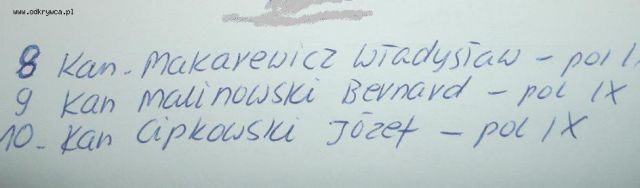 www.odkrywca.pl
8 Kan. Makarewicz Władysław – pol
9 Kan Malinowski Bernard – pol IX
10. Kan Cipkowski Józef – pol IX